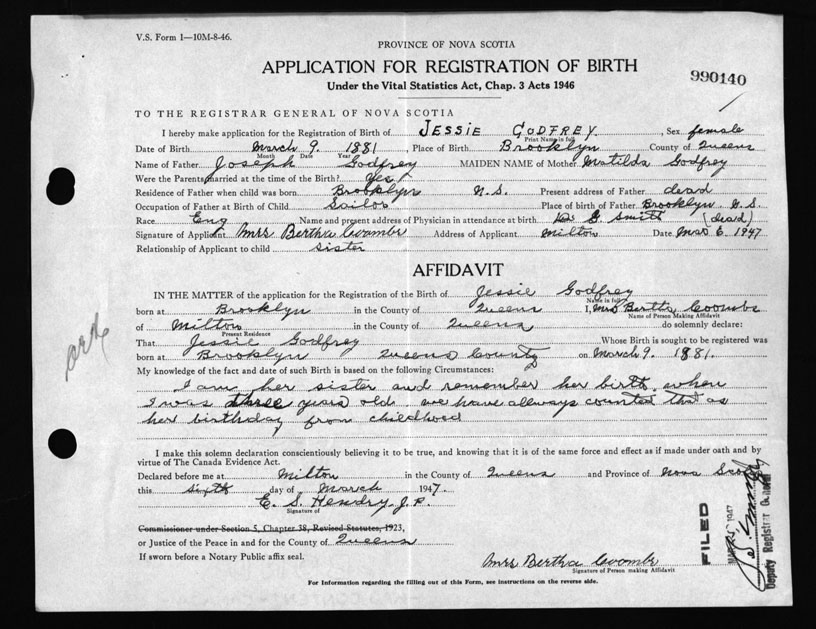 V.S. Form 1—10M-8-46.
PROVINCE OF NOVA SCOTIA
APPLICATION FOR REGISTRATION OF BIRTH
990140
Under the Vital Statistics Act, Chap. 3 Acts 1946
TO THE REGISTRAR GENERAL OF NOVA SCOTIA
I hereby make application for the Registration of Birth of JESSIE GODFREY, Sex female
Print Name in full
Date of Birth March 9. 1881, Place of Birth Brooklyn County of Queens
Month Date Year
Name of Father Joseph Godfrey MAIDEN NAME of Mother Matilda Godfrey
Were the Parents married at the time of Birth? Yes
Residence of Father when child was born Brooklyn N.S. Present address of Father dead
Occupation of Father at Birth of Child Sailor Place of birth of Father Brooklyn. N. S.
Race Eng Name and present address of Physician in attendance at birth Dr. Smith (dead)
Signature of Applicant Mrs Bertha Coombs Address of Applicant Milton Date Mar 6. 1947
Relationship of Applicant to child sister
AFFIDAVIT
IN THE MATTER of the application for the Registration of the Birth of Jessie Godfrey
Name in full
born at Brooklyn in the County of Queens I, Mrs Bertha Coombs
Name of Person Making Affidavit
of Milton in the County of Queens do solemnly declare:
Present Residence
That Jessie Godfrey Whose Birth is sought to be registered was
born at Brooklyn Queens County on March 9. 1881.
My knowledge of the fact and date of such Birth is based on the following Circumstances:
I am her sister and remember her birth. when
I was three years old. we have allways counted that as
her birthday from childhood
I make this solemn declaration conscientiously believing it to be true, and knowing that it is of the same force and effect as if made under oath and by
virtue of The Canada Evidence Act.
Declared before me at Milton in the County of Queens and Province of Nova Scotia
this sixth day of March 1947
E. S. Hendry J.P.
Signature of
Commissioner under Section 5, Chapter 38, Revised Statutes, 1923,
or Justice of the Peace in and for the County of Queens
If sworn before a Notary Public affix seal.
Mrs Bertha Coombs
Signature of Person making Affidavit
FILED
Deputy Registrar General
For Information regarding the filling out of this Form, see instructions on the reverse side.